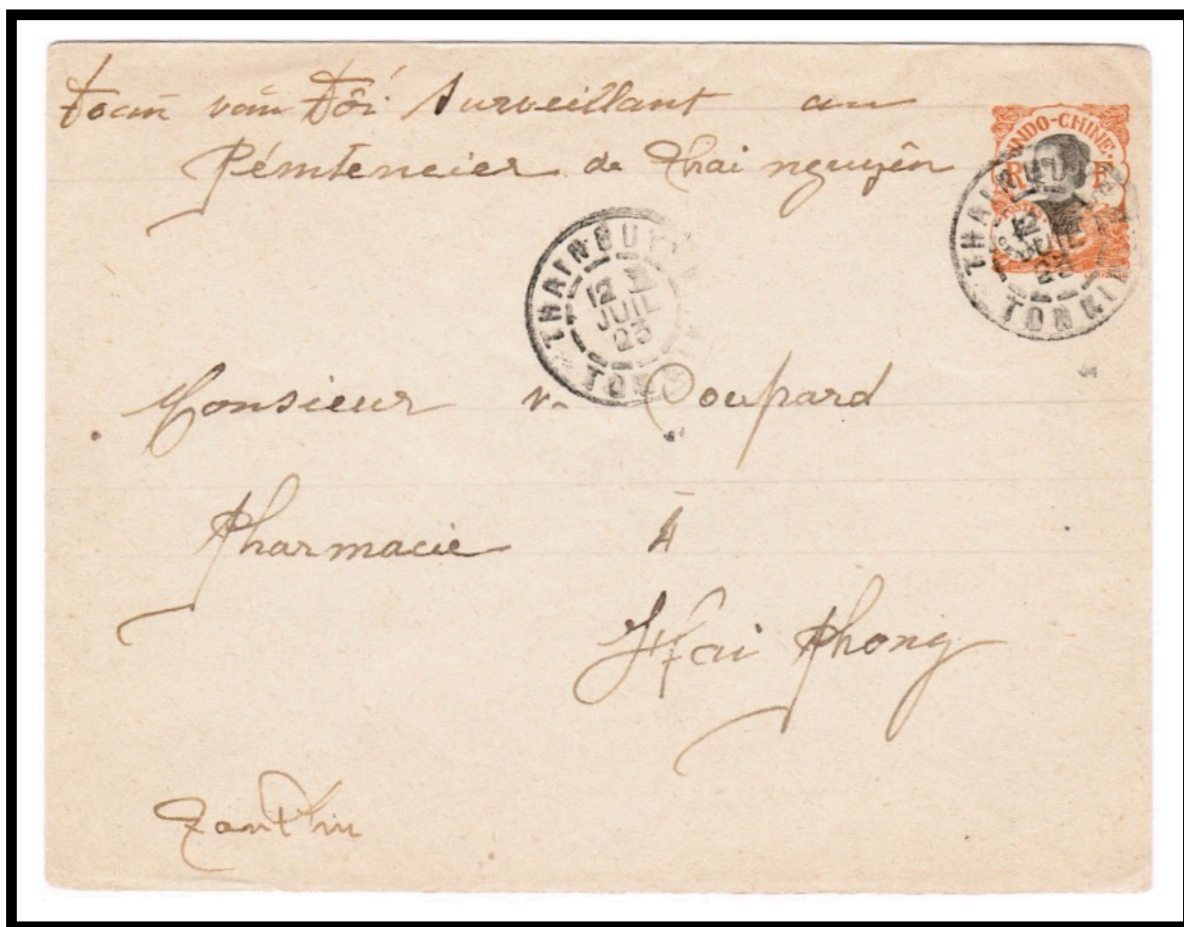 Đoàn văn Đôí Surveillant au
Pénitencier de Thai nguyên
INDO-CHINE
R F
POSTES
THAINGUYEN
12
JUIL
23
TONKIN
THAINGUYEN
12
JUIL
23
TONKIN
Monsieur v. Coupard
Pharmacie À
Hai Phong